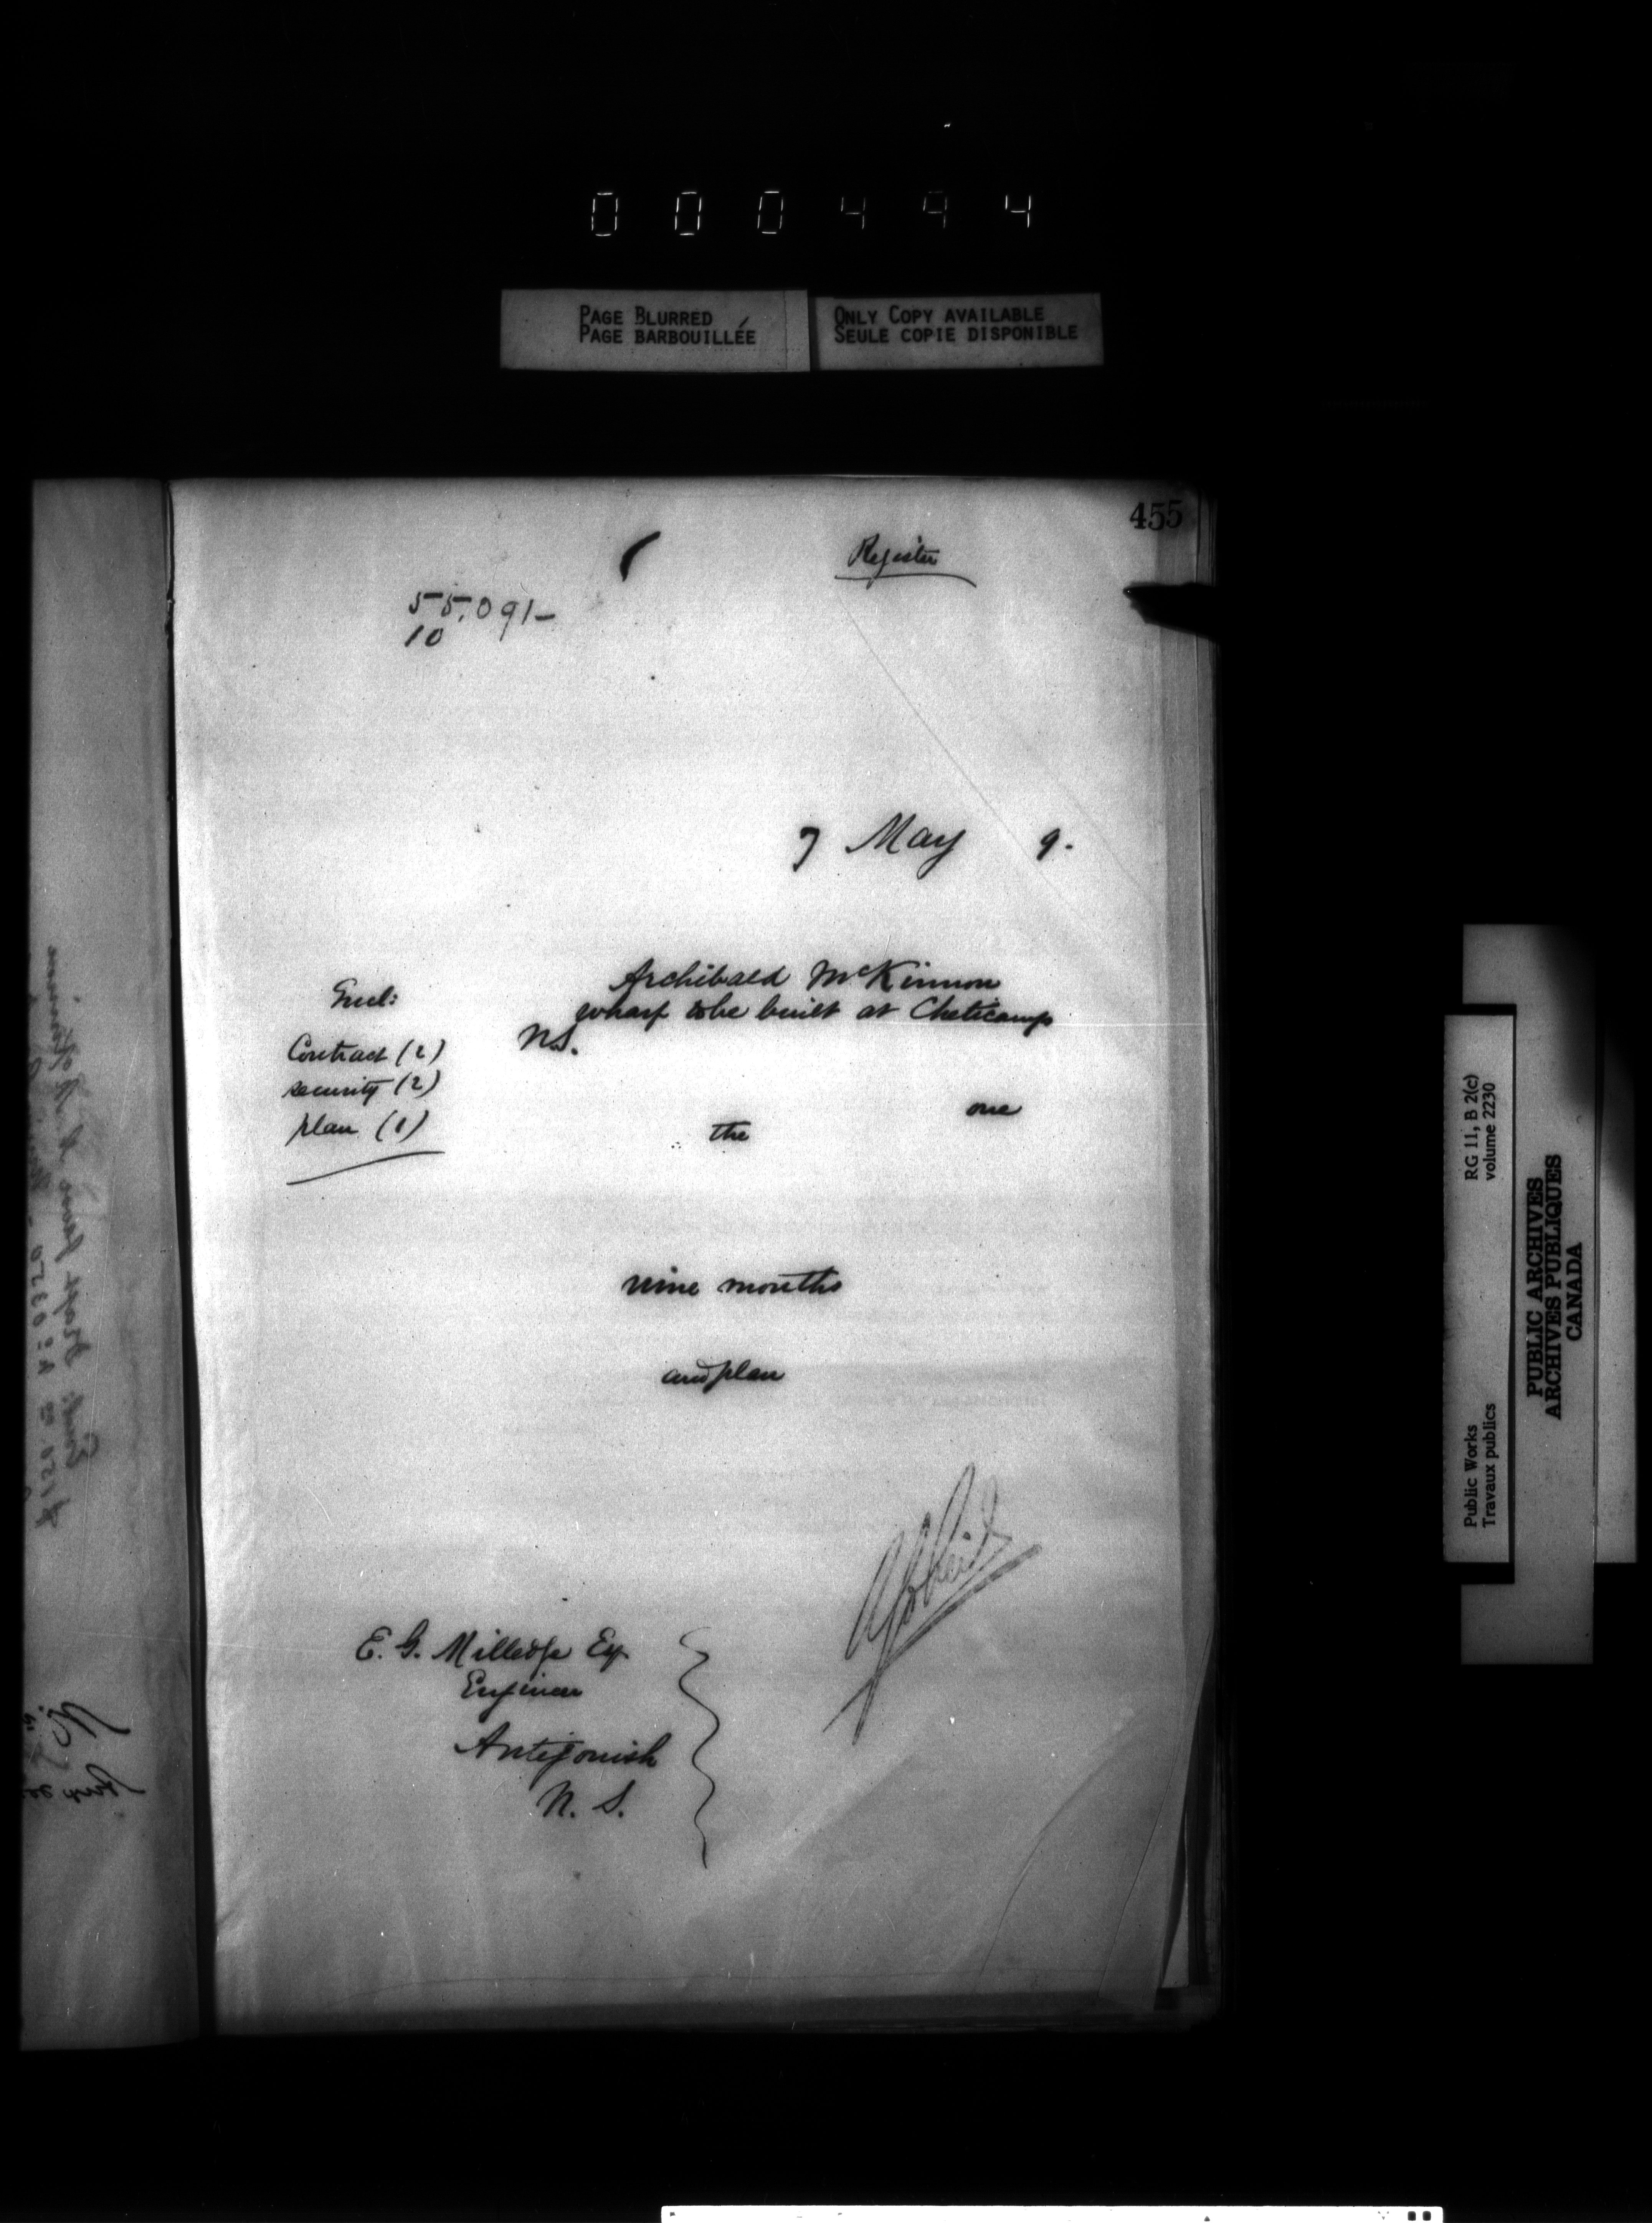 000494
PAGE BLURRED
PAGE BARBOUILLÉE
ONLY COPY AVAILABLE
SEULE COPIE DISPONIBLE
455
Register
55,091-
10
7 May 9.
Archibald McKinnon
wharf to be built at Cheticamp
N.S.
Encl:
Contract (2)
security (2)
plan (1)
one
the
nine months
and plan
E. G. Milledge Esq
Engineer
Antigonish
N. S.
Public Works
Travaux publics
RG 11, B 2(c)
volume 2230
PUBLIC ARCHIVES
ARCHIVES PUBLIQUES
CANADA